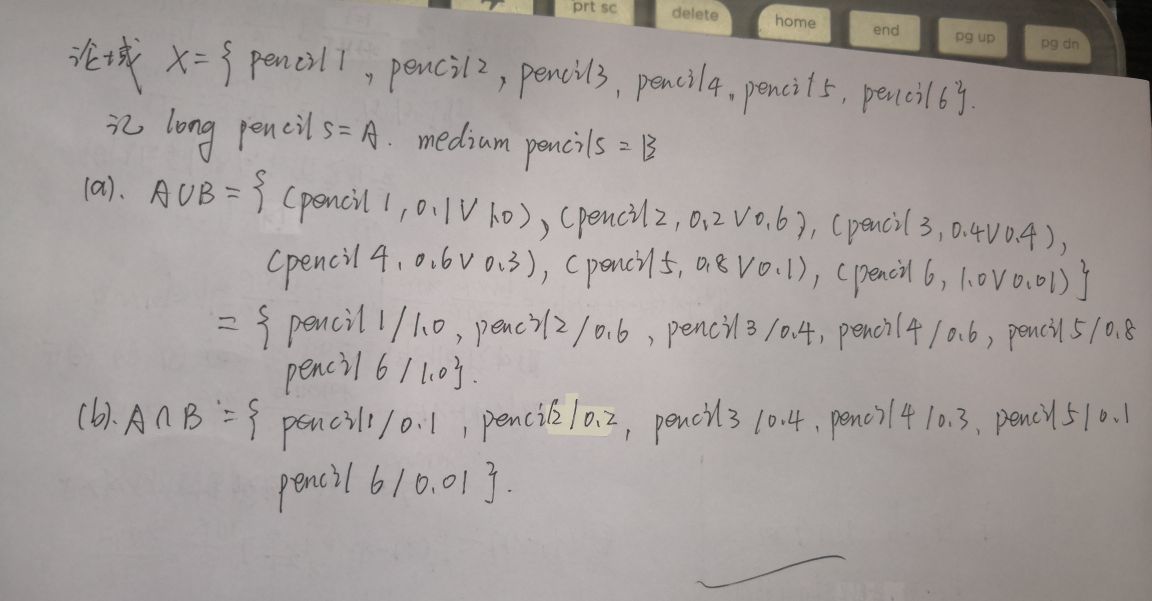 prt sc delete home end pg up pg dn
论域 X={ pencil 1, pencil 2, pencil 3, pencil 4, pencil 5, pencil 6}.
记 long pencils = A. medium pencils = B
(a). A∪B = { (pencil 1, 0.1∨1.0), (pencil 2, 0.2∨0.6), (pencil 3, 0.4∨0.4),
(pencil 4, 0.6∨0.3), (pencil 5, 0.8∨0.1), (pencil 6, 1.0∨0.01)}
= { pencil 1/1.0, pencil 2/0.6, pencil 3/0.4, pencil 4/0.6, pencil 5/0.8
pencil 6/1.0}.
(b). A∩B = { pencil 1/0.1, pencil 2/0.2, pencil 3/0.4, pencil 4/0.3, pencil 5/0.1
pencil 6/0.01}.